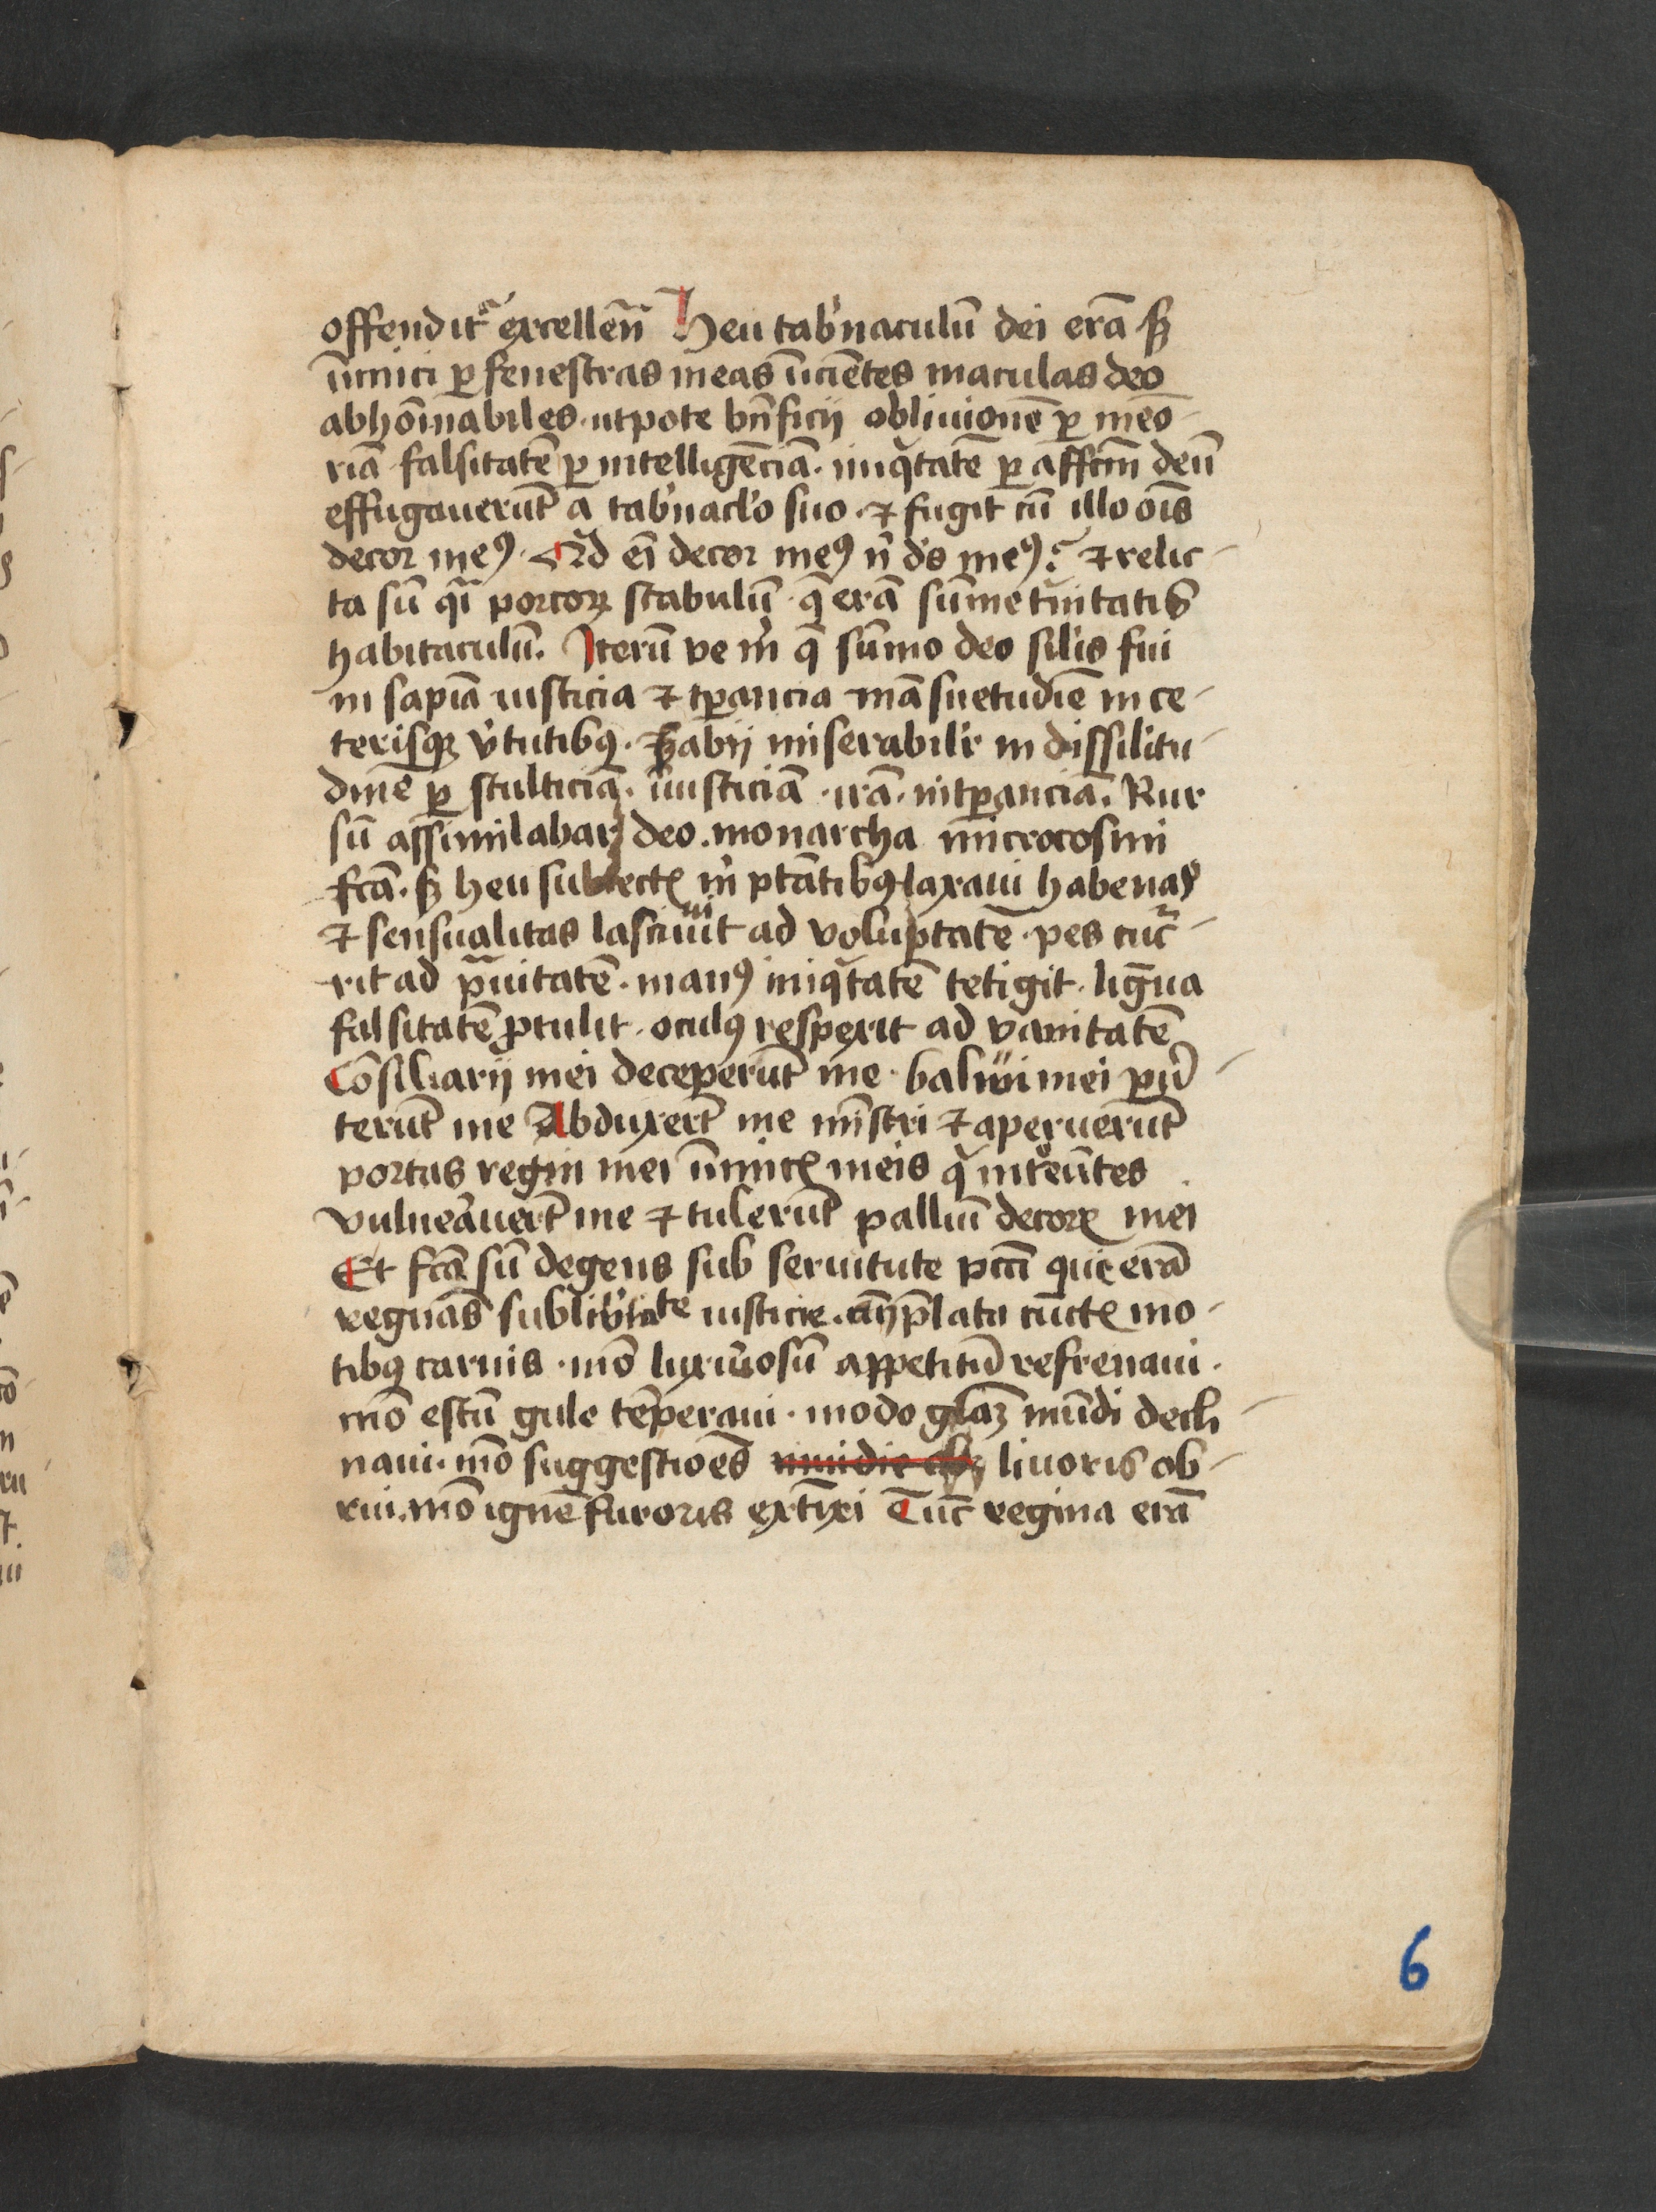 offendit᷑ excellen̄ Heu tab'naculū dei erā sꝫ
īimici ꝑ fenestras meas īicie͞tes maculas deo
abhōinabiles · utpote bn̄ficij obliuionē ꝑ meō-
riā falsitatē ꝑ intelligēciā · iniqͥtatē ꝑ affcm̄ deū
effugauerūt a tab'nacl'o suo · ⁊ fugit cū illo oīs
decor meꝰ · Qͥd eī decor meꝰ n̄ d's meꝰ? ⁊ relic-
ta sū qͣi porcoꝝ stabulū · q̄ erā sūme tͥnitatis
habitaculū. Iterū ve m̄ q̄ sūmo deo silis fui
in sapīa iusticia ⁊ tꝑancia māsuetudīe in ce-
terisqꝫ v'tutibꝰ · Habij miserabil'r in dissilitu-
dinē ꝑ stulticiā · īiusticiā · irā · intꝑanciā. Rur
sū assimilabar deo · monarcha microcosmi
fcā · sꝫ heu subiectꝭ m' ptātibꝰ laxaui habenas
⁊ sensualitas lasciuiit ad voluptatē · pes cuc᷑-
rit ad pͣuitatē · manꝰ iniqͥtatē tetigit · ligͣua
falsitatē ꝓtulit · oculꝰ respexit ad vanitatē
Cōsiliarij mei deceperūt me · baliui mei
terūt me Abduxert̄ me mīstri ⁊ aperuerūt
portas regni mei īimicꝭ meis qͥ introeūtes
vulneͣuert̄ me ⁊ tulerūt palliū decorꝭ mei
Et fcā sū degens sub seruitute pcc̄i que erā
regnās sub lib'tate iusticie · cūctꝭ mo-
tibꝰ carnis · mō luxuͦosū appetitū refrenaui ·
mō estū gule tēperaui · modo glaꝫ mūdi decli
naui · mō suggestioēs liuoris ob-
rui · mō ignē furoris extīxi Tūc regina erā
6